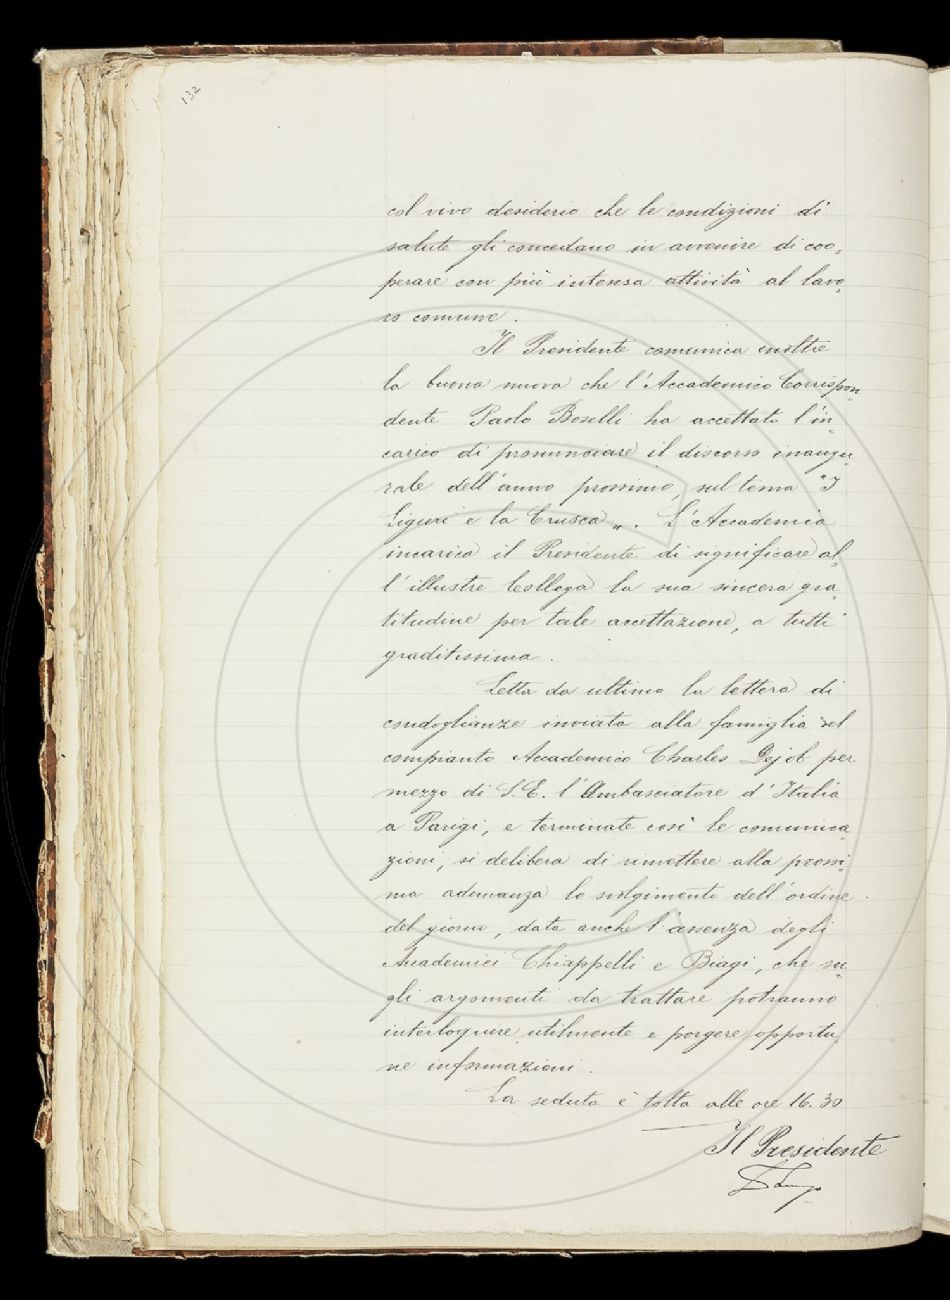 132
col vivo desiderio che le condizioni di
salute gli concedano in avvenire di coo=
perare con più intensa attività al lavo=
ro comune.
Il Presidente comunica inoltre
la buona nuova che l'Accademico Corrispon=
dente Paolo Boselli ha accettato l'in=
carico di pronunciare il discorso inaugu=
rale dell'anno prossimo, sul tema "I
Liguri e la Crusca„. L'Accademia
incarica il Presidente di significare al=
l'illustre Collega la sua sincera gra=
titudine per tale accettazione, a tutti
graditissima.
Letta da ultimo la lettera di
condoglianze inviata alla famiglia del
compianto Accademico Charles Dejob per
mezzo di S.E. l'Ambasciatore d'Italia
a Parigi, e terminate così le comunica=
zioni, si delibera di rimettere alla prossi=
ma adunanza lo svolgimento dell'ordine
del giorno, data anche l'assenza degli
Accademici Chiappelli e Biagi, che su=
gli argomenti da trattare potranno
interloquire utilmente e porgere opportu=
ne informazioni.
La seduta è tolta alle ore 16.30
Il Presidente